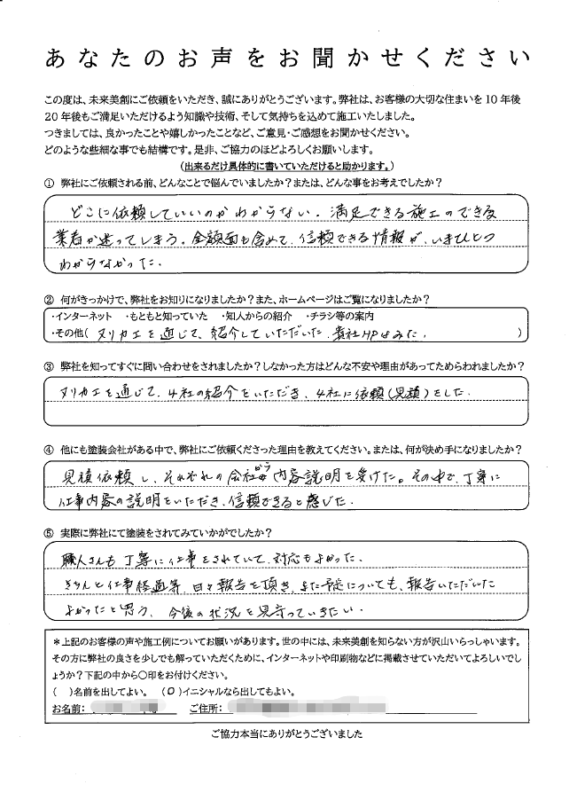 あなたのお声をお聞かせください
この度は、未来美創にご依頼をいただき、誠にありがとうございます。弊社は、お客様の大切な住まいを10年後
20年後もご満足いただけるよう知識や技術、そして気持ちを込めて施工いたしました。
つきましては、良かったことや嬉しかったことなど、ご意見・ご感想をお聞かせください。
どのような些細な事でも結構です。是非、ご協力のほどよろしくお願いします。
(出来るだけ具体的に書いていただけると助かります。)
① 弊社にご依頼される前、どんなことで悩んでいましたか?または、どんな事をお考えでしたか?
どこに依頼していいのかわからない。満足できる施工のできる
業者か迷ってしまう。金額面も含めて、信頼できる情報が、いまひとつ
わからなかった。
② 何がきっかけで、弊社をお知りになりましたか?また、ホームページはご覧になりましたか?
・インターネット ・もともと知っていた ・知人からの紹介 ・チラシ等の案内
・その他( ヌリカエを通じて、紹介していただいた。貴社HPはみた。 )
③ 弊社を知ってすぐに問い合わせをされましたか?しなかった方はどんな不安や理由があってためらわれましたか?
ヌリカエを通じて、4社の紹介をいただき、4社に依頼(見積)をした。
④ 他にも塗装会社がある中で、弊社にご依頼くださった理由を教えてください。または、何が決め手になりましたか?
見積依頼し、それぞれの会社から内容説明を受けた。その中で、丁寧に
仕事内容の説明をいただき、信頼できると感じた。
⑤ 実際に弊社にて塗装をされてみていかがでしたか?
職人さんも丁寧に仕事をされていて、対応もよかった。
きちんと仕事経過等、日々報告を頂き、また予定についても、報告いただいた
よかったと思う。今後の状況を見守っていきたい。
*上記のお客様の声や施工例についてお願いがあります。世の中には、未来美創を知らない方が沢山いらっしゃいます。
その方に弊社の良さを少しでも解っていただくために、インターネットや印刷物などに掲載させていただいてよろしいでし
ょうか?下記の中から〇印をお付けください。
( )名前を出してよい。 (O)イニシャルなら出してもよい。
お名前: ご住所:
ご協力本当にありがとうございました